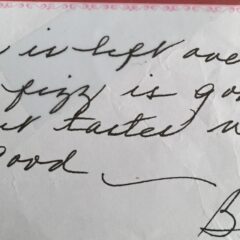 is left ove
fizz is go
ut tastes
good
B